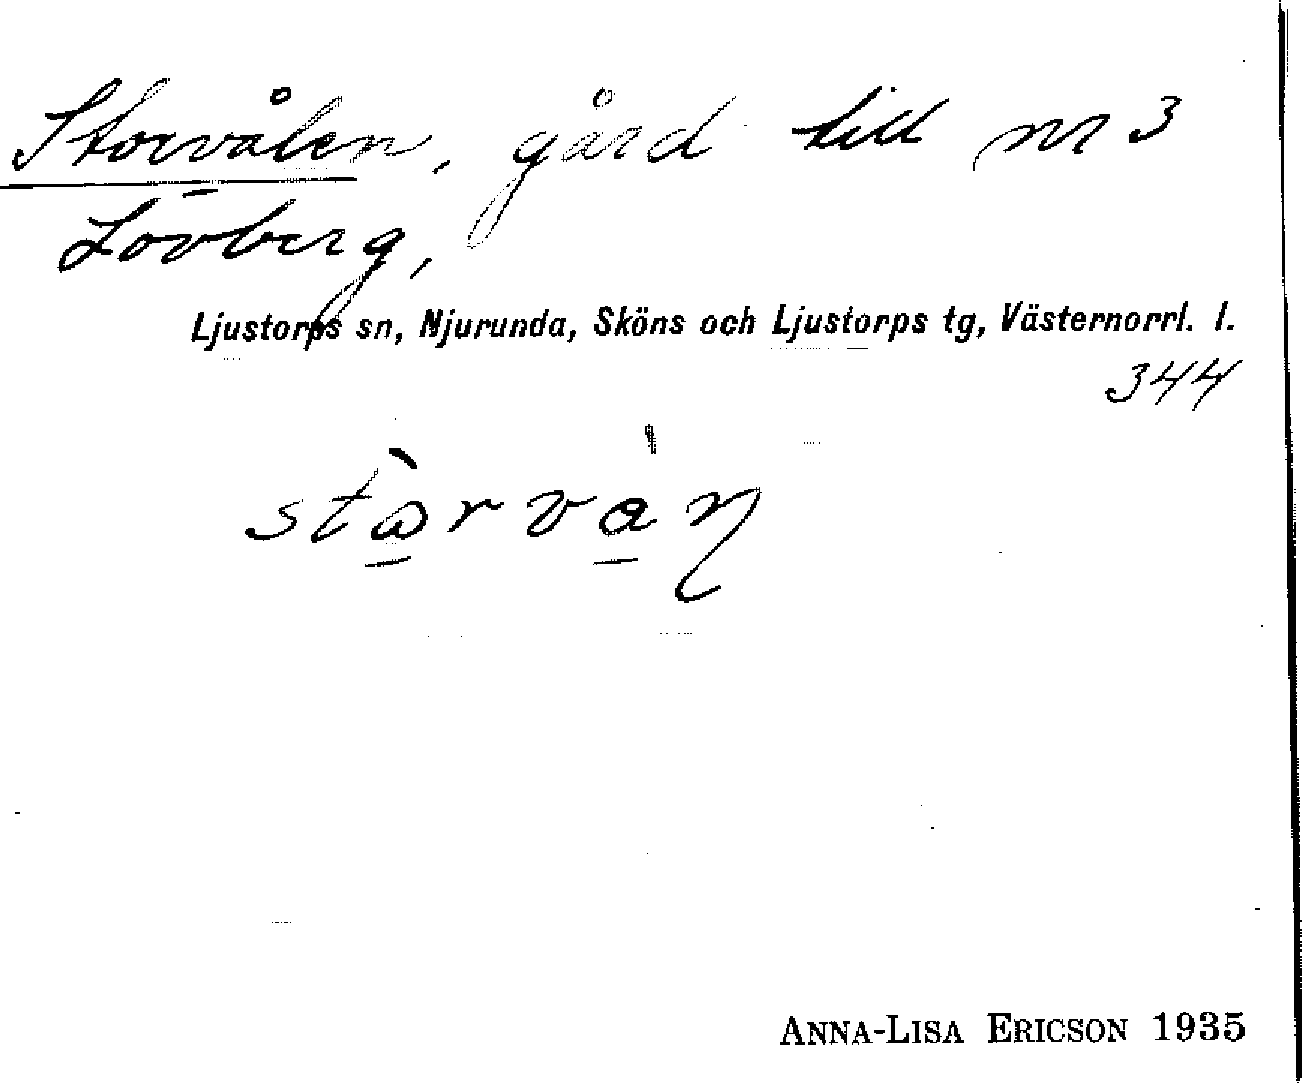 Storvålen, gård till nr 3
Lövberg,
Ljustorps sn, Njurunda, Sköns och Ljustorps tg, Västernorrl. l.
344
ANNA-LISA ERICSON 1935